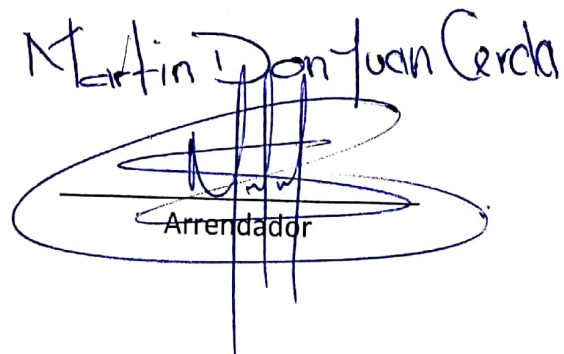 Martin Don Juan Cerda
Arrendador